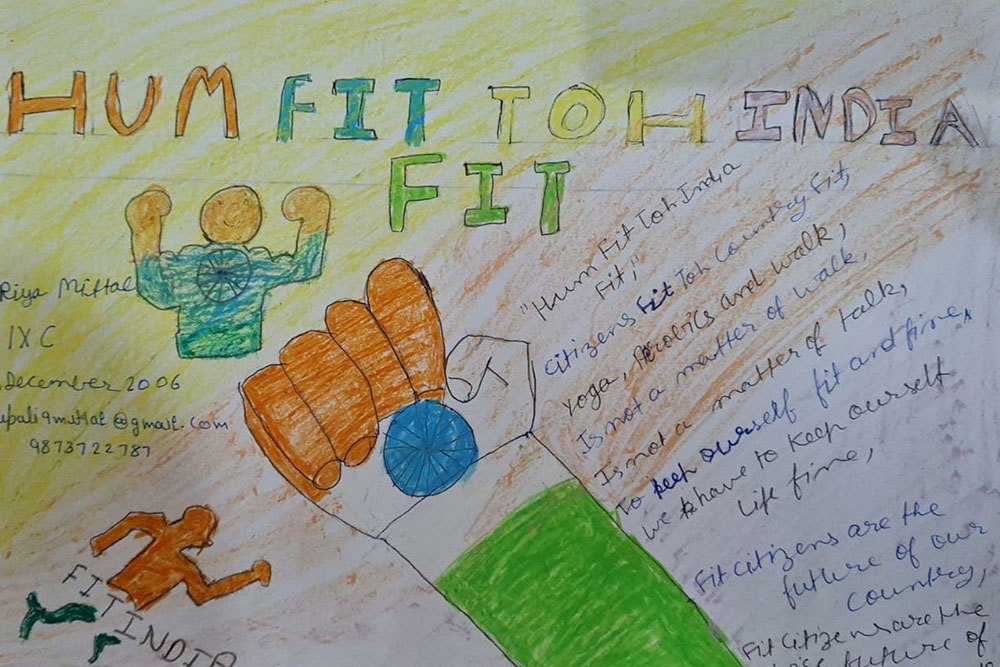 HUM FIT TOH INDIA
FIT
Riya Mittal
IX C
December 2006
@gmail.com
9873722787
FIT INDIA
"Hum Fit Toh India
Fit,"
Citizens Fit Toh Country Fit,
Yoga, Aerobics and walk,
Is not a matter of walk,
Is not a matter of talk,
To keep ourself fit and fine,
we have to keep ourself
life fine,
Fit citizens are the
future of our
country,
Fit Citizens are the
future of